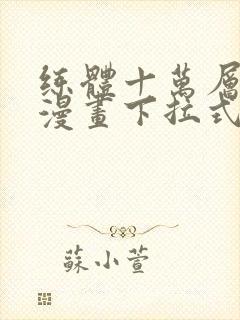 練體十萬層
漫畫下拉式
蘇小萱